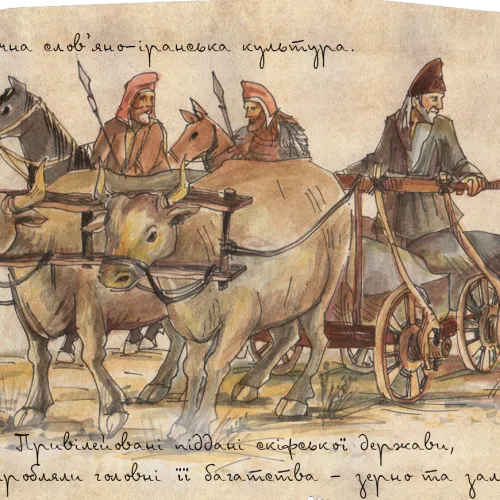 чна слов'яно-іранська культура.
Привілейовані піддані скіфської держави,
робляли головні її багатства – зерно та зал